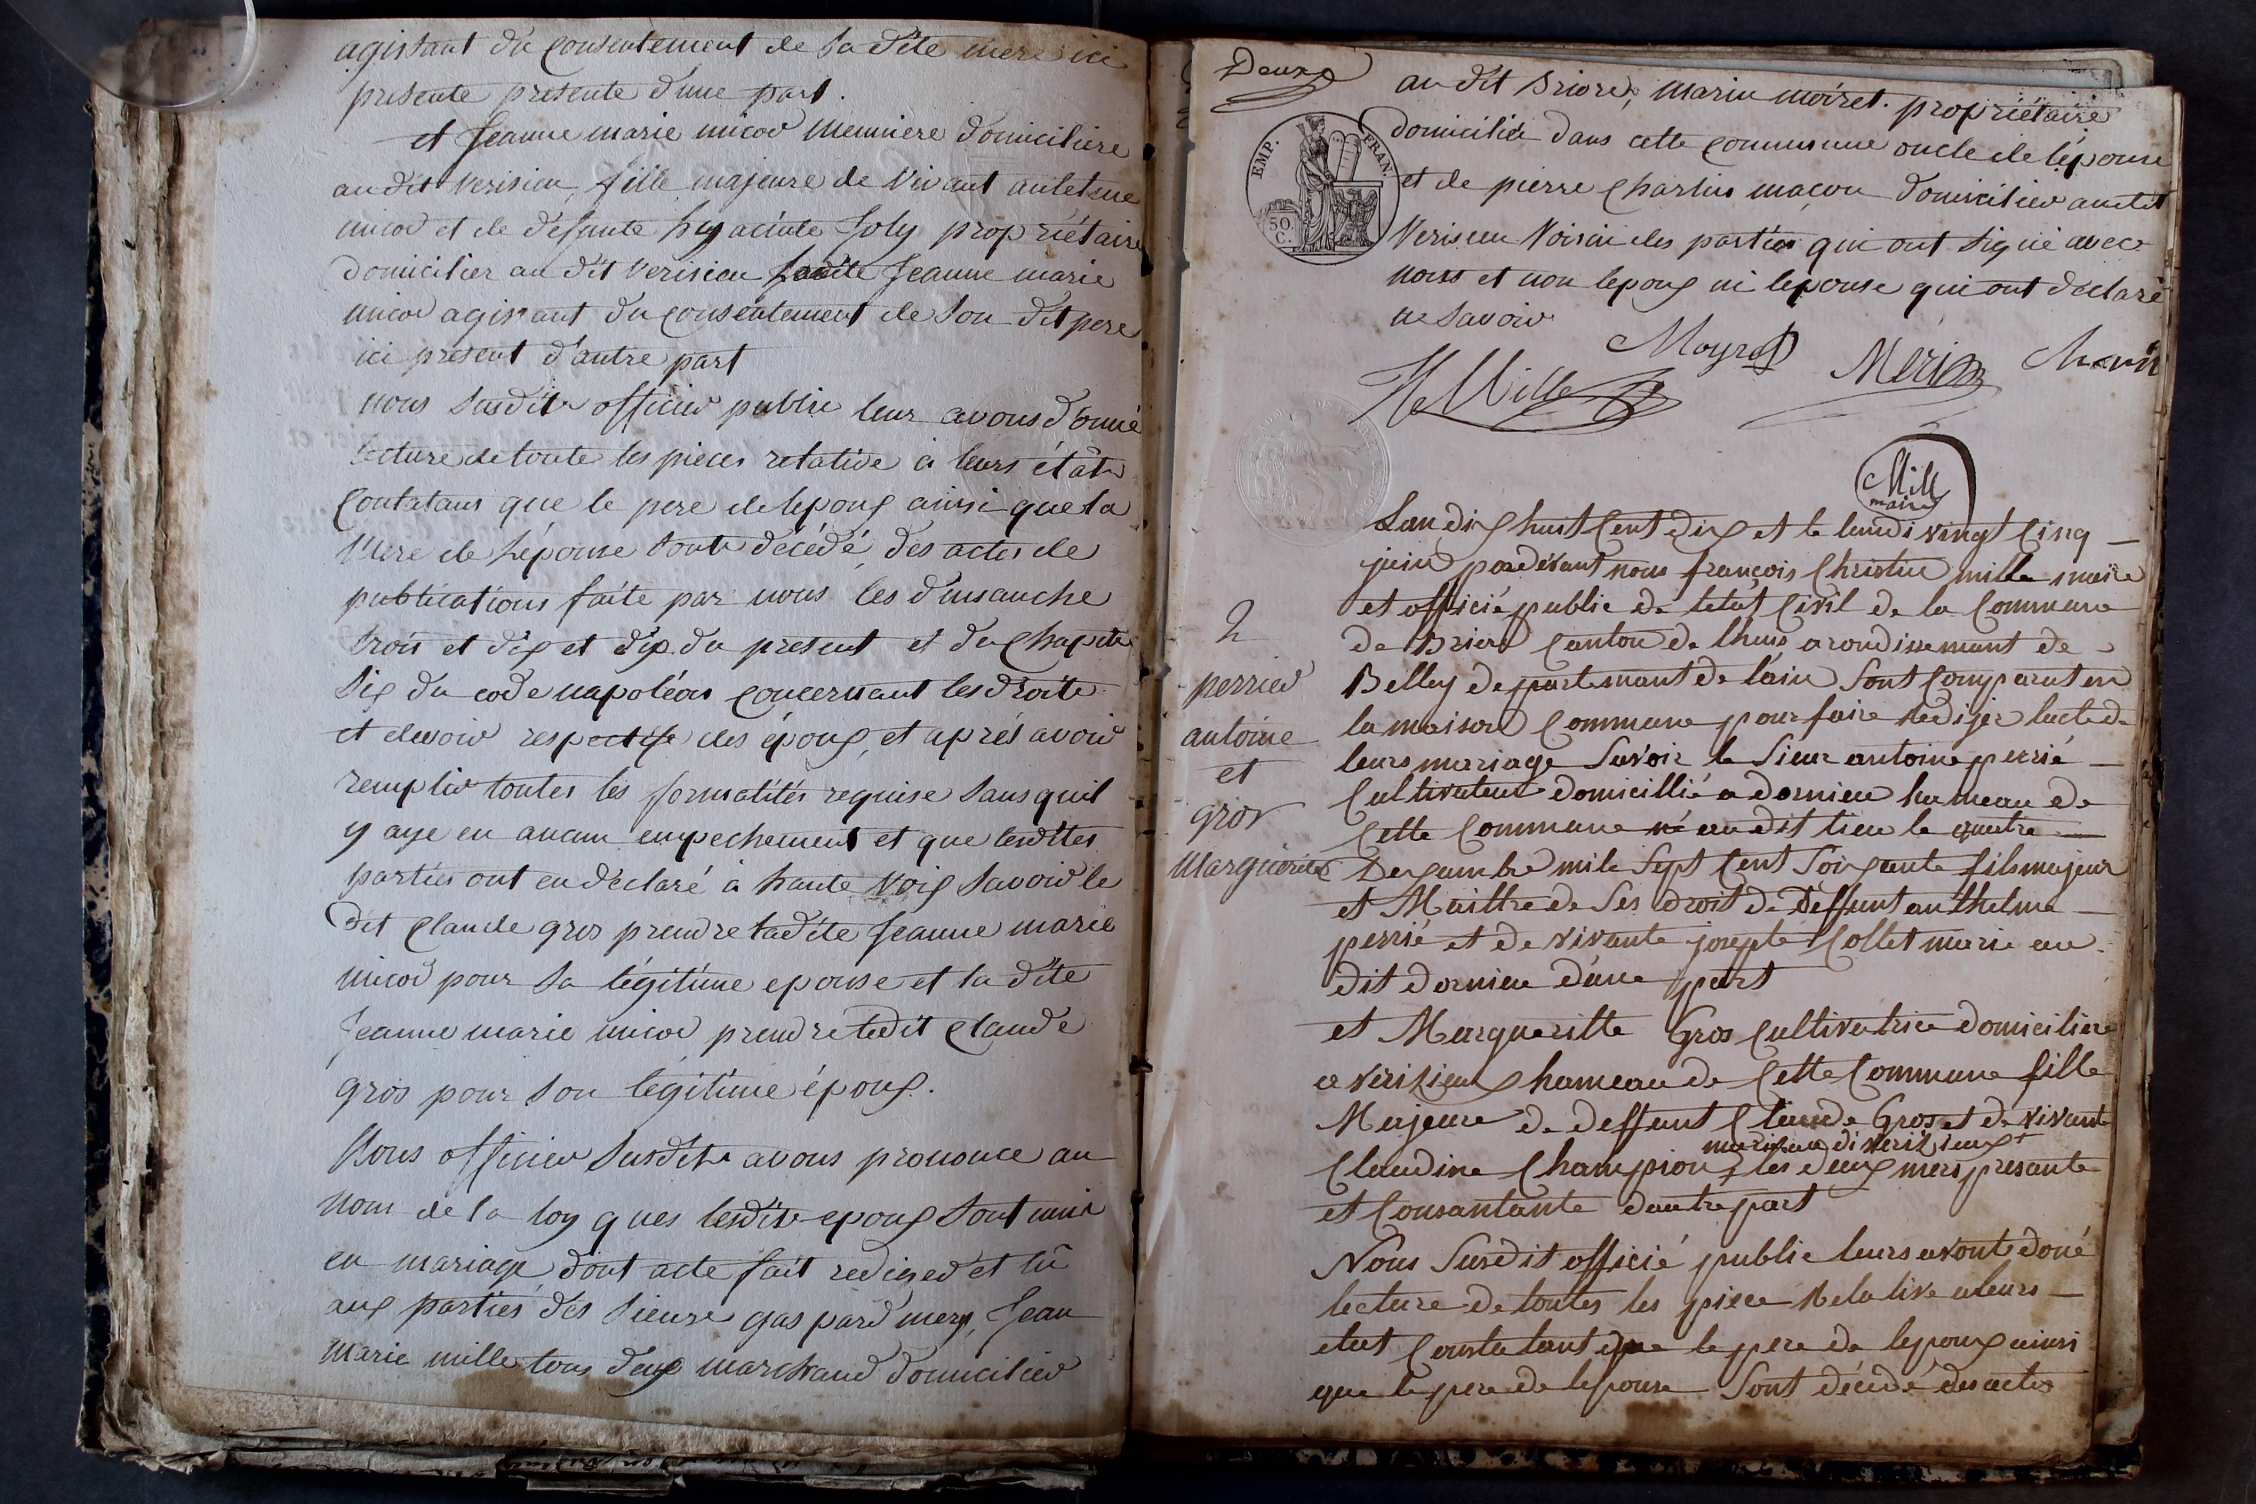 agissant du consentement de sa dite mere ici
presente presente d'une part.
et Jeanne marie micod meuniere domiciliere
au dit verisieu, fille majeure de vivant antelme
micod et de défunte hyacinte Joly propriétaire
domicilier au dit verisieu ladite Jeanne marie
micod agissant du consentement de son dit pere
ici present d'autre part
nous susdit officier public leur avons donné
lecture de toute les pieces relative à leurs état
contatans que le pere de lepoux ainsi que la
mere de l'épouse sont décédé, des actes de
publications faite par nous les dimanche
trois et dix et dix du present et du chapitre
six du code napoléon concernant les droits
et devoir respectifs des époux, et après avoir
remplir toutes les formalités requise sans quil
y aye eu aucun empechement et que lesdittes
parties ont eu déclaré à haute voix savoir le
dit claude gros prendre ladite Jeanne marie
micod pour sa légitime epouse et la dite
Jeanne marie micod prendre ledit claude
gros pour son legitime époux.
Nous officier susdit avons prononce au
nom de la loy ques lesdits epoux sont unis
en mariage, dont acte fait rediged et lû
aux parties des sieurs gaspard mery, Jean
marie mille tous deux marchand domicilier
Deux
au dit Briord, marin moiret. propriétaire
domicilié dans cette commune oncle de l'épouse
et de pierre charlin maçon domicilier audit
Veriseu voisin des parties qui ont signé avec
nous et non lepoux ni lepouse qui ont déclaré
ne savoir
EMP. FRAN.
50 C.
Moyret Merim
Mille
Mille
maire
Lan dix huit cent dix et le lundi vingt cinq
juin pardevant nous françois Christin mille maire
et officié public de letat civil de la commune
de Briord canton de lhuis arondissemant de
Belley departemant de lain sont comparut en
la maison commune pour faire redijer lacte de
leurs mariage Savoir le Sieur antoine perrié
Cultivateur domicillié a dornieu hameau de
Cette commune né au dit lieu le quatre
Dexambre mile sept cent soixante fils majeur
et Maithre de ses droit de deffunt anthelme
perrié et de vivante josepte Collet marié au
dit dornieu d'une part
et Margueritte Gros cultivatrice domiciliere
a verizieux hameau de cette commune fille
Majeure de deffunt Claude Gros et de vivante
mariés au dit verizieux +
Claudine Champion + les deux mers presante
et Consantante d'autre part
Nous Susdit officié public leurs avont doné
lecture de toutes les piece relative aleurs
etat Constatant que le pere de lepoux ainsi
que le pere de lepouse sont décédé des actes
2
perrier
antoine
et
gros
Marguerite